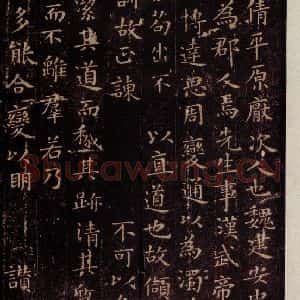 倩平原厭次也魏建安中
為郡人焉先生事漢武帝
博達思周變通以為濁
苟出不 以直道也故頡
訓故正諫 不可以
潔其道而穢其跡清其質
而不離群若乃
多能合變以明 讚
Shufawang.CN